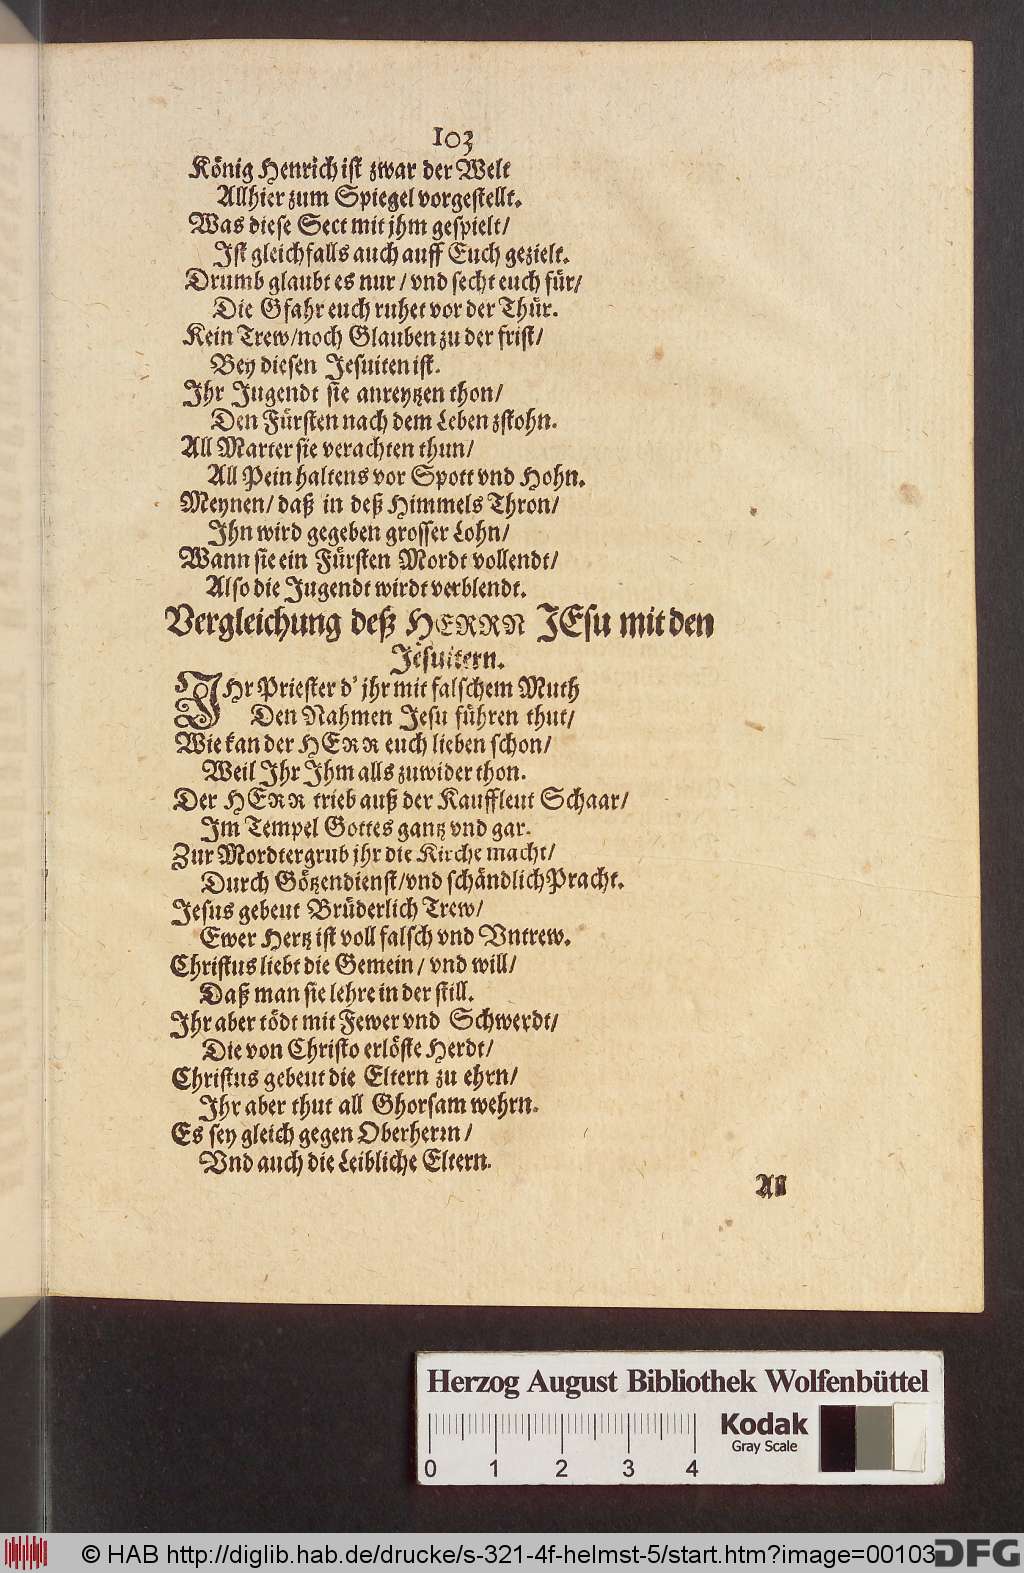 103
König Henrich ist zwar der Welt
Allhier zum Spiegel vorgestellt.
Was diese Sect mit jhm gespielt/
Ist gleichfalls auch auff Euch gezielt.
Drumb glaubt es nur / vnd secht euch für/
Die Gfahr euch ruhet vor der Thür.
Kein Trew/noch Glauben zu der frist/
Bey diesen Jesuiten ist.
Ihr Jugendt sie anreytzen thon/
Den Fürsten nach dem Leben zstohn.
All Marter sie verachten thun/
All Pein haltens vor Spott vnd Hohn.
Meynen/ daß in deß Himmels Thron/
Ihn wird gegeben grosser Lohn/
Wann sie ein Fürsten Mordt vollendt/
Also die Jugendt wirdt verblendt.
Vergleichung deß HERRN JEsu mit den
Jesuitern.
IHr Priester d' jhr mit falschem Muth
Den Nahmen Jesu führen thut/
Wie kan der HERR euch lieben schon/
Weil Ihr Ihm alls zuwider thon.
Der HERR trieb auß der Kauffleut Schaar/
Im Tempel Gottes gantz vnd gar.
Zur Mordtergrub jhr die Kirche macht/
Durch Götzendienst/vnd schändlich Pracht.
Jesus gebeut Brüderlich Trew/
Ewer Hertz ist voll falsch vnd Vntrew.
Christus liebt die Gemein / vnd will/
Daß man sie lehre in der still.
Ihr aber tödt mit Fewer vnd Schwerdt/
Die von Christo erlöste Herdt/
Christus gebeut die Eltern zu ehrn/
Ihr aber thut all Ghorsam wehrn.
Es sey gleich gegen Oberherrn /
Vnd auch die Leibliche Eltern.
All
Herzog August Bibliothek Wolfenbüttel
0 1 2 3 4
Kodak
Gray Scale
© HAB http://diglib.hab.de/drucke/s-321-4f-helmst-5/start.htm?image=00103
DFG